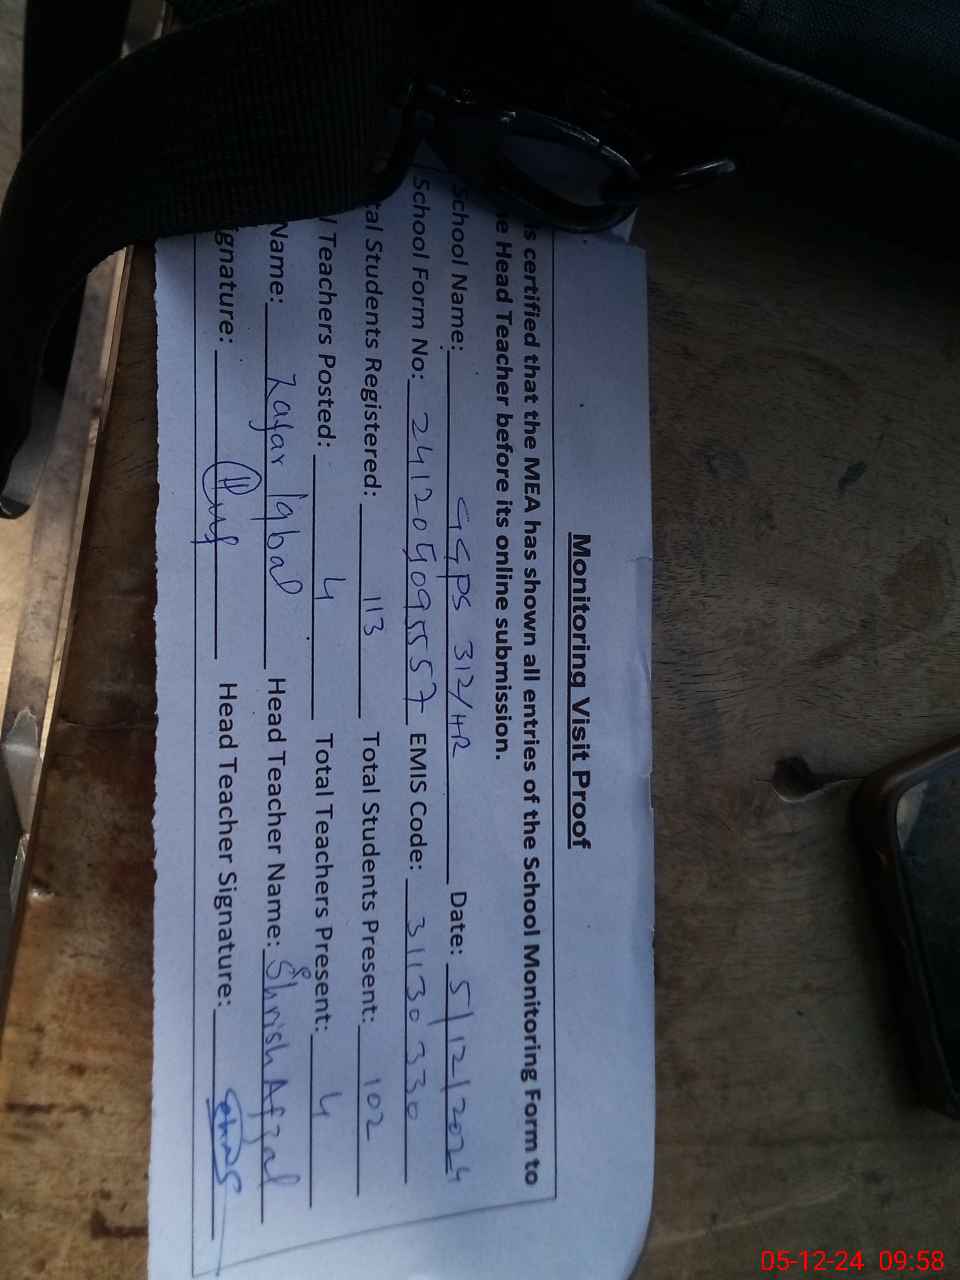 Monitoring Visit Proof
is certified that the MEA has shown all entries of the School Monitoring Form to
e Head Teacher before its online submission.
School Name: GGPS 312/HR Date: 5/12/2024
School Form No: 24120409557 EMIS Code: 31130330
tal Students Registered: 113 Total Students Present: 102
l Teachers Posted: 4 Total Teachers Present: 4
Name: Zafar Iqbal Head Teacher Name: Shrish Afzal
ignature: Head Teacher Signature:
05-12-24 09:58